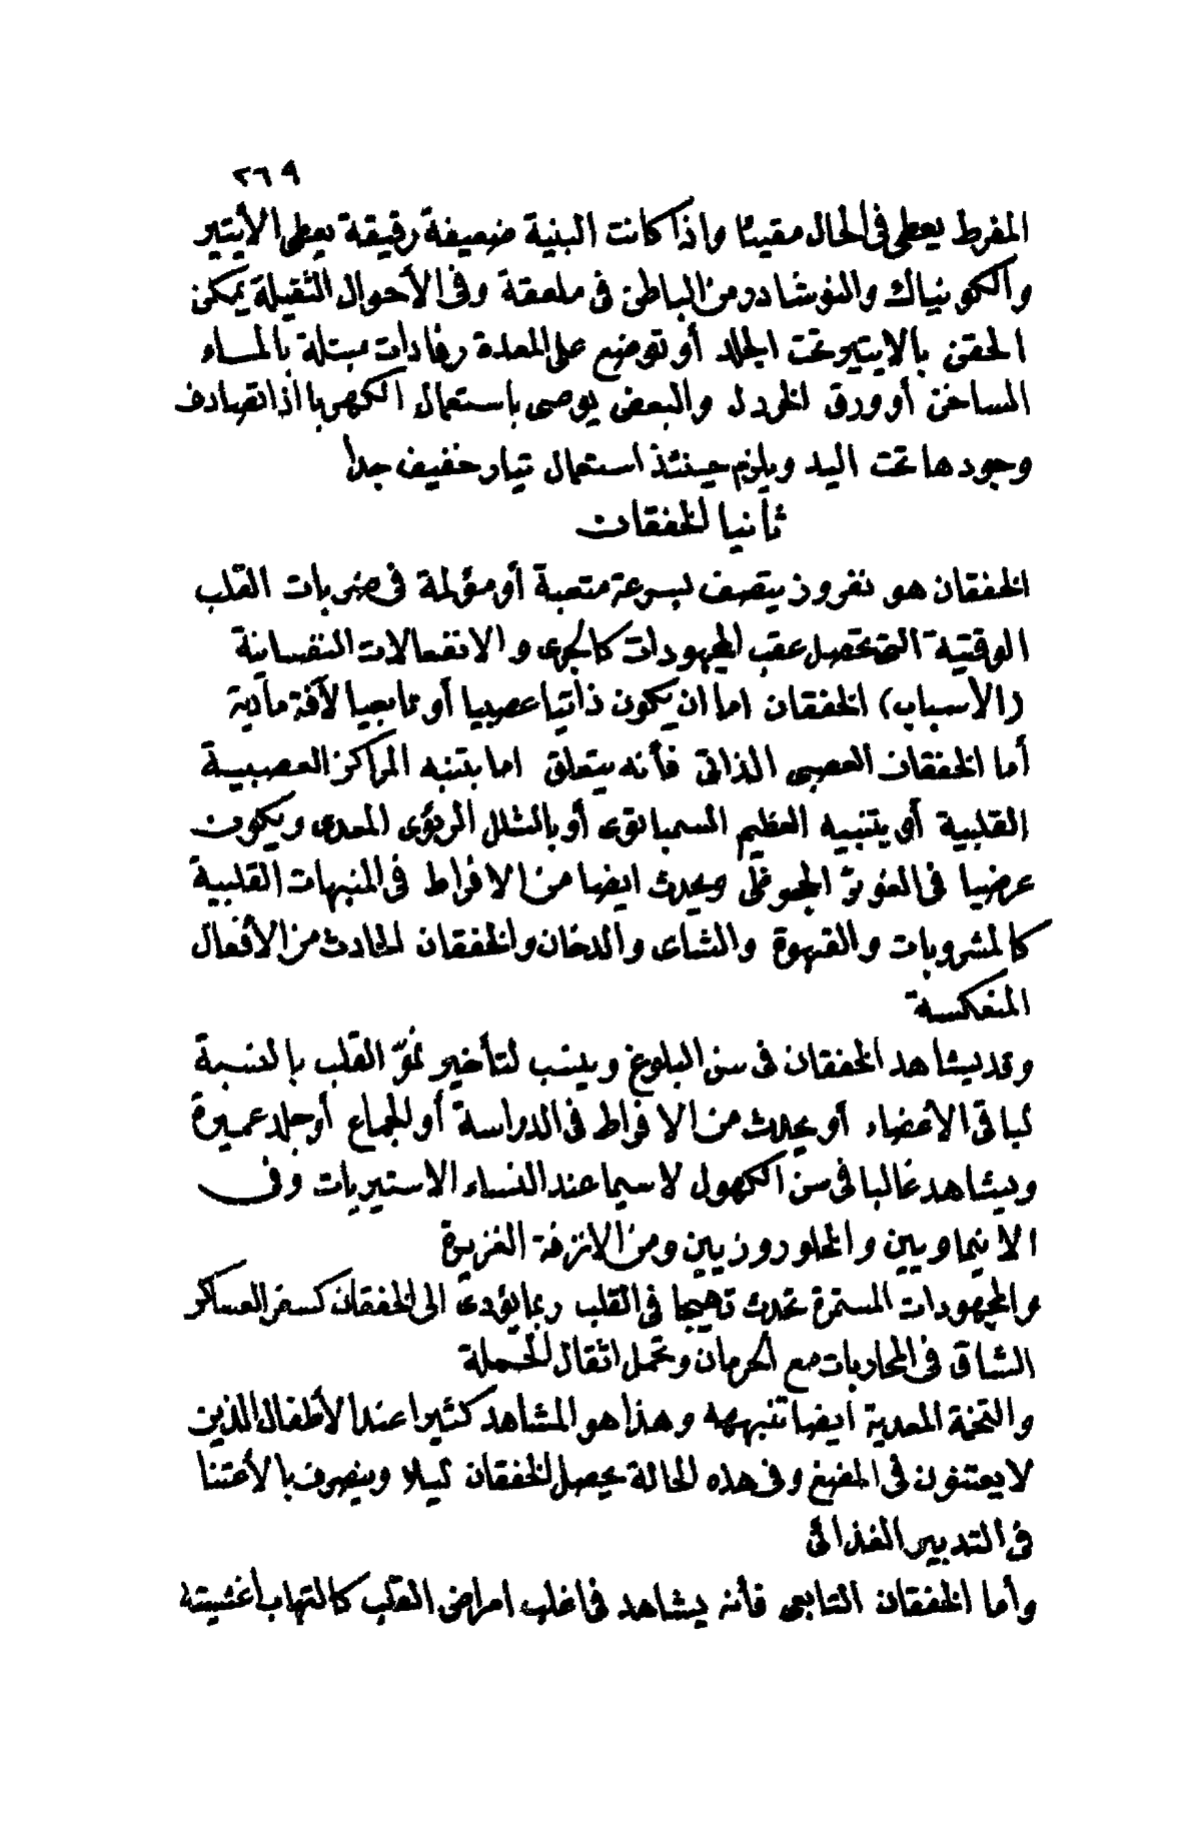 ٢٦٩
المفرط يعطى فى الحال مقيئا واذا كانت البنية ضعيفة رقيقة يعطى الأيتير
والكونياك والنوشادر من الباطن فى ملعقة وفى الأحوال الثقيلة يمكن
الحقن بالايتير تحت الجلد أو توضع على المعدة رفادات مبتلة بالمساء
الساخن أو ورق الخردل والبعض يوصى باستعمال الكهربا اذا تصادف
وجودها تحت اليد ويلزم حينئذ استعمال تيار خفيف جدا
ثانيا الخفقان
الخفقان هو نفروز يتصف بسرعة متعبة أو مؤلمة فى ضربات القلب
الوقتية التى تحصل عقب المجهودات كالجرى والانفعالات النفسانية
(الأسباب) الخفقان اما ان يكون ذاتيا عصبيا أو تابعيا لآفة مادية
أما الخفقان العصبى الذاتى فأنه يتعلق اما بتنبه المراكز العصبية
القلبية أو بتنبيه العظيم السمباتوى أو بالشلل الريؤى المعدى ويكون
عرضيا فى الغوتر الجحوظى ويحدث ايضا من الافراط فى المنبهات القلبية
كالمشروبات والقهوة والشاى والدخان والخفقان الحادث من الأفعال
المنعكسة
وقد يشاهد الخفقان فى سن البلوغ وينسب لتأخير نموّ القلب بالنسبة
لباقى الأعضاء أو يحدث من الافراط فى الدراسة أو الجماع أو جلد عميرة
ويشاهد غالبا فى سن الكهول لاسيما عند النساء الاستيريات وفى
الانيماويين والخلوروزيين ومن الانزفة الغزيرة
والمجهودات المستمرة تحدث تهيجا فى القلب ربما يؤدى الى الخفقان كسفر العساكر
الشاق فى المحاربات مع الحرمان وتحمل اثقال الحملة
والتخمة المعدية ايضا تنبهه وهذا هو المشاهد كثيرا عند الأطفال الذين
لا يعتنون فى المضغ وفى هذه الحالة يحصل الخفقان ليلا وينصرف بالأعتنا
فى التدبير الغذائى
وأما الخفقان التابعى فأنه يشاهد فى اغلب امراض القلب كالتهاب اغشيته